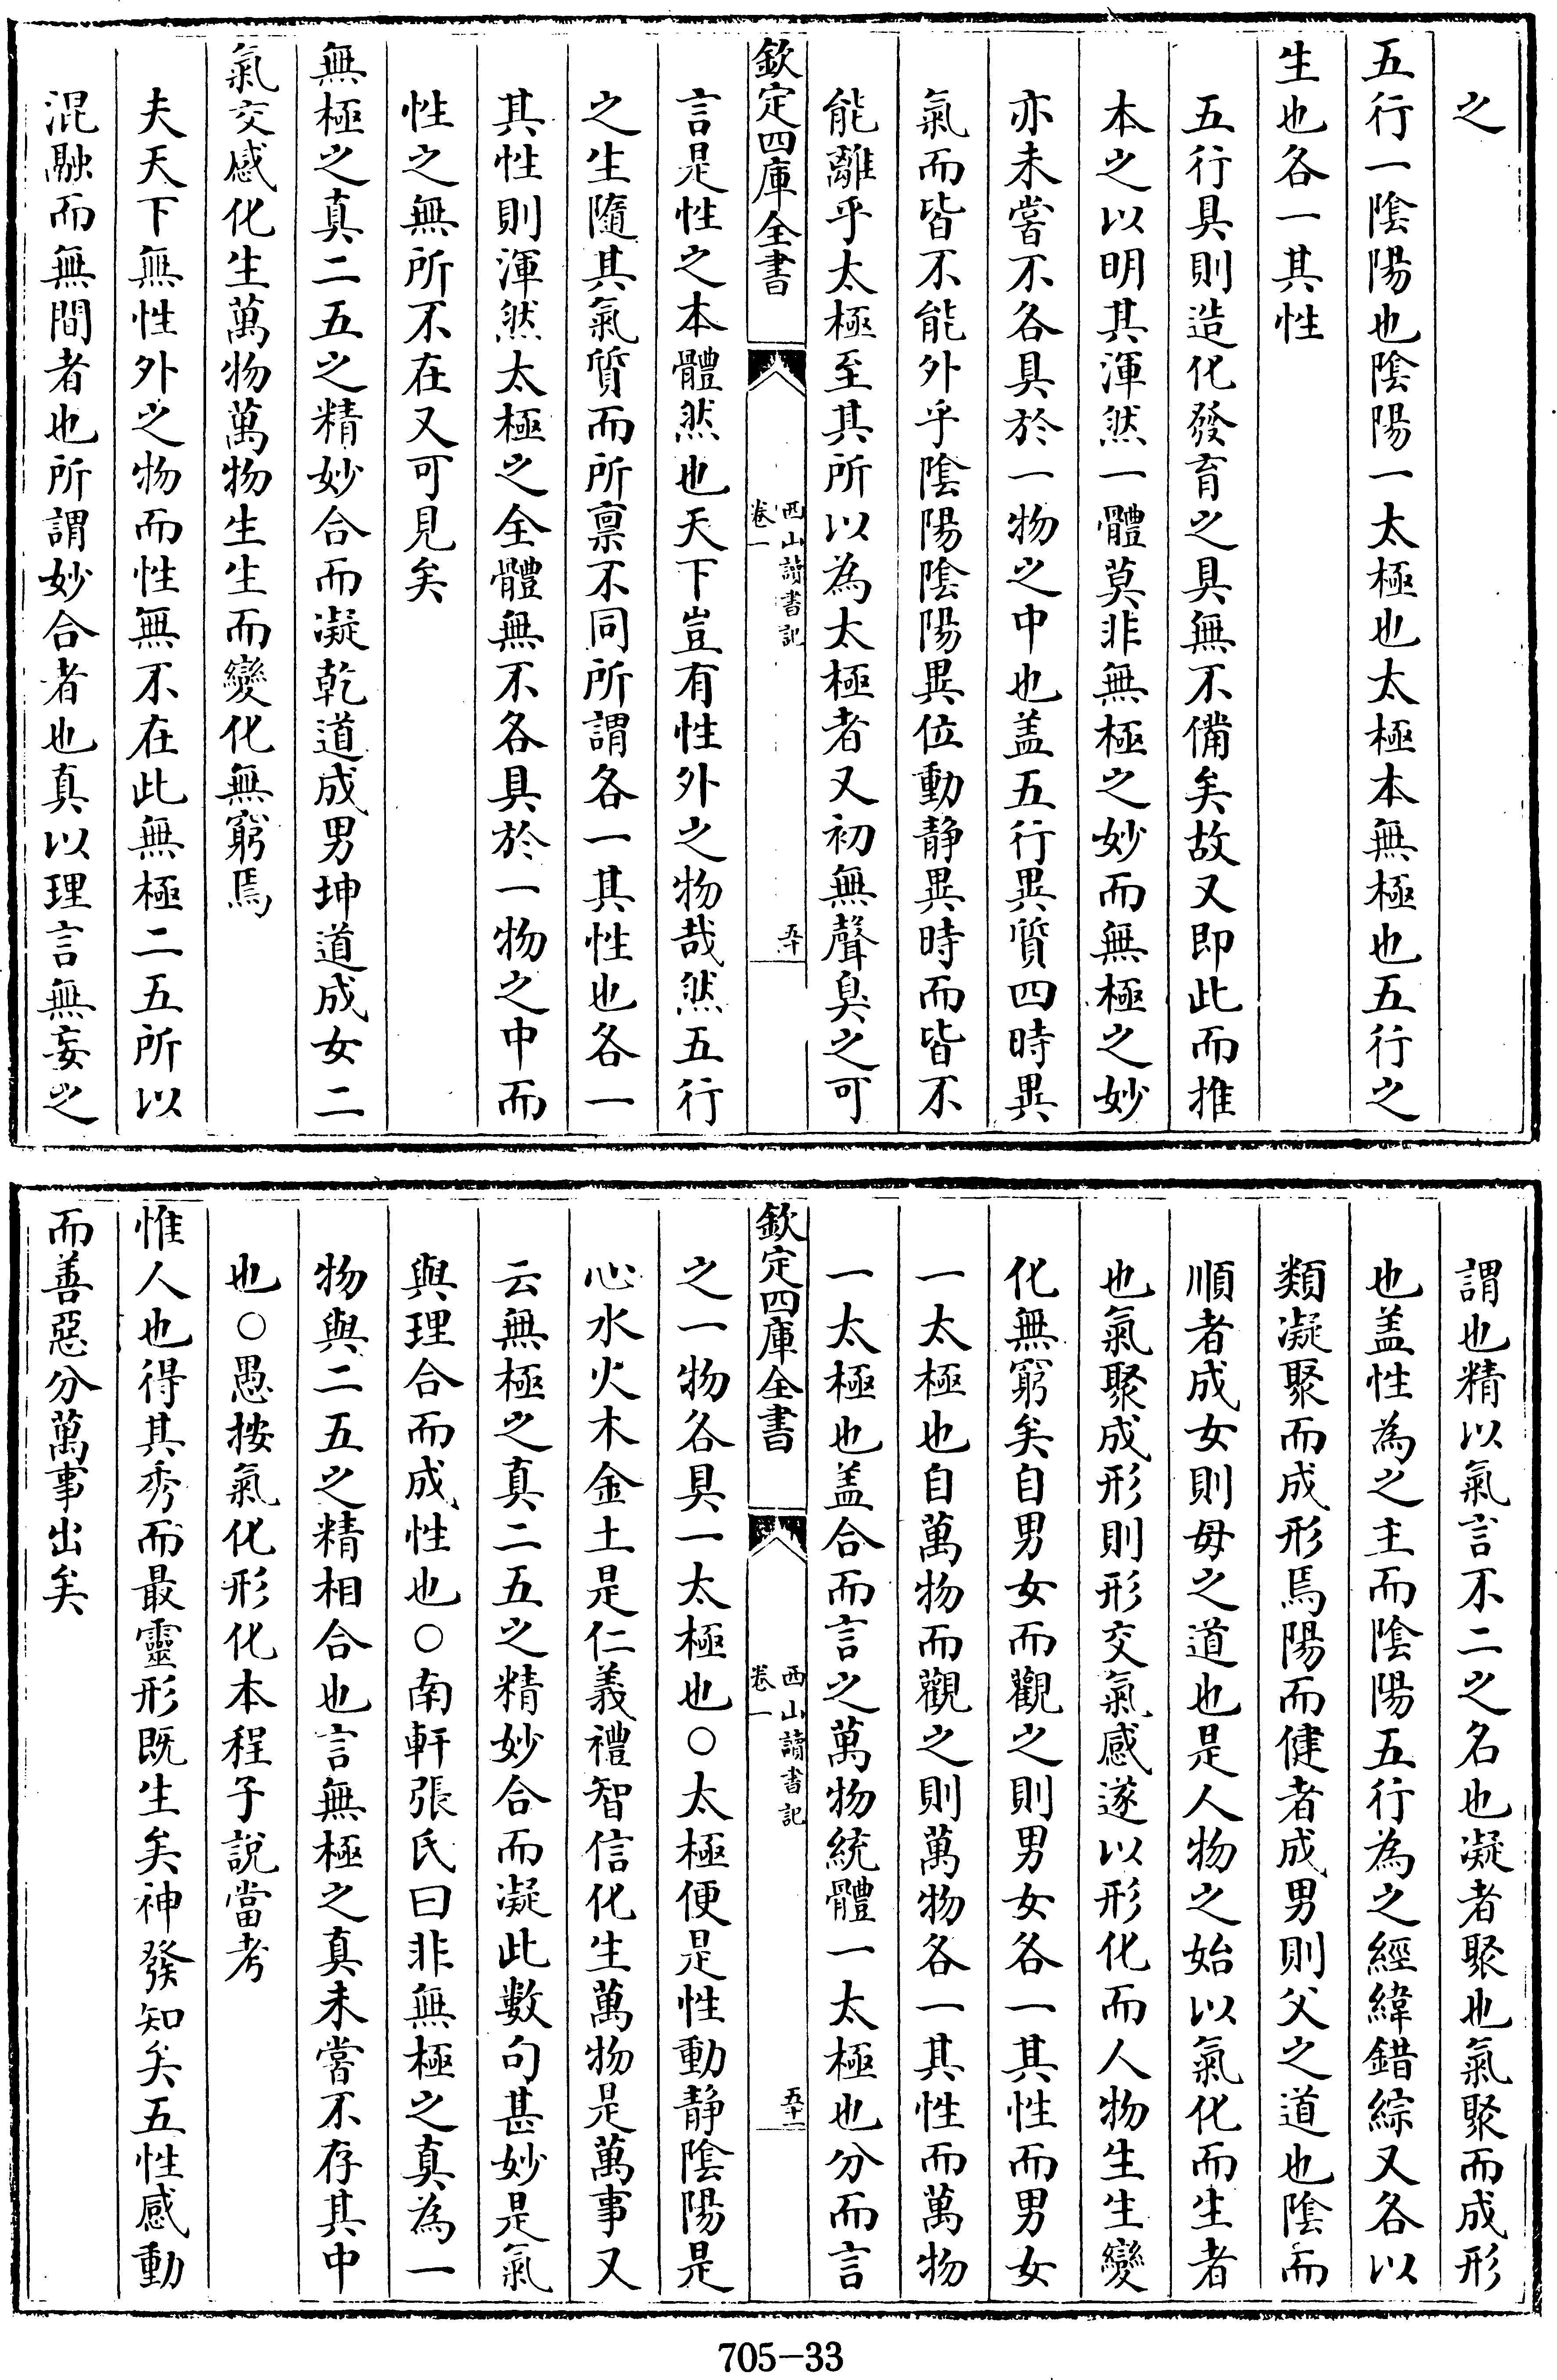 之
五行一陰陽也陰陽一太極也太極本無極也五行之
生也各一其性
五行具則造化發育之具無不備矣故又即此而推
本之以明其渾然一體莫非無極之妙而無極之妙
亦未嘗不各具於一物之中也盖五行異質四時異
氣而皆不能外乎陰陽陰陽異位動静異時而皆不
能離乎太極至其所以為太極者又初無聲臭之可
欽定四庫全書
西山讀書記
卷一
五十
言是性之本體然也天下豈有性外之物哉然五行
之生隨其氣質而所禀不同所謂各一其性也各一
其性則渾然太極之全體無不各具於一物之中而
性之無所不在又可見矣
無極之真二五之精妙合而凝乾道成男坤道成女二
氣交感化生萬物萬物生生而變化無窮焉
夫天下無性外之物而性無不在此無極二五所以
混融而無間者也所謂妙合者也真以理言無妄之
謂也精以氣言不二之名也凝者聚也氣聚而成形
也盖性為之主而陰陽五行為之經緯錯綜又各以
類凝聚而成形焉陽而健者成男則父之道也陰而
順者成女則母之道也是人物之始以氣化而生者
也氣聚成形則形交氣感遂以形化而人物生生變
化無窮矣自男女而觀之則男女各一其性而男女
一太極也自萬物而觀之則萬物各一其性而萬物
一太極也盖合而言之萬物統體一太極也分而言
欽定四庫全書
西山讀書記
卷一
五十一
之一物各具一太極也○太極便是性動静陰陽是
心水火木金土是仁義禮智信化生萬物是萬事又
云無極之真二五之精妙合而凝此數句甚妙是氣
與理合而成性也○南軒張氏曰非無極之真為一
物與二五之精相合也言無極之真未嘗不存其中
也○愚按氣化形化本程子說當考
惟人也得其秀而最靈形既生矣神發知矣五性感動
而善惡分萬事出矣
705-33